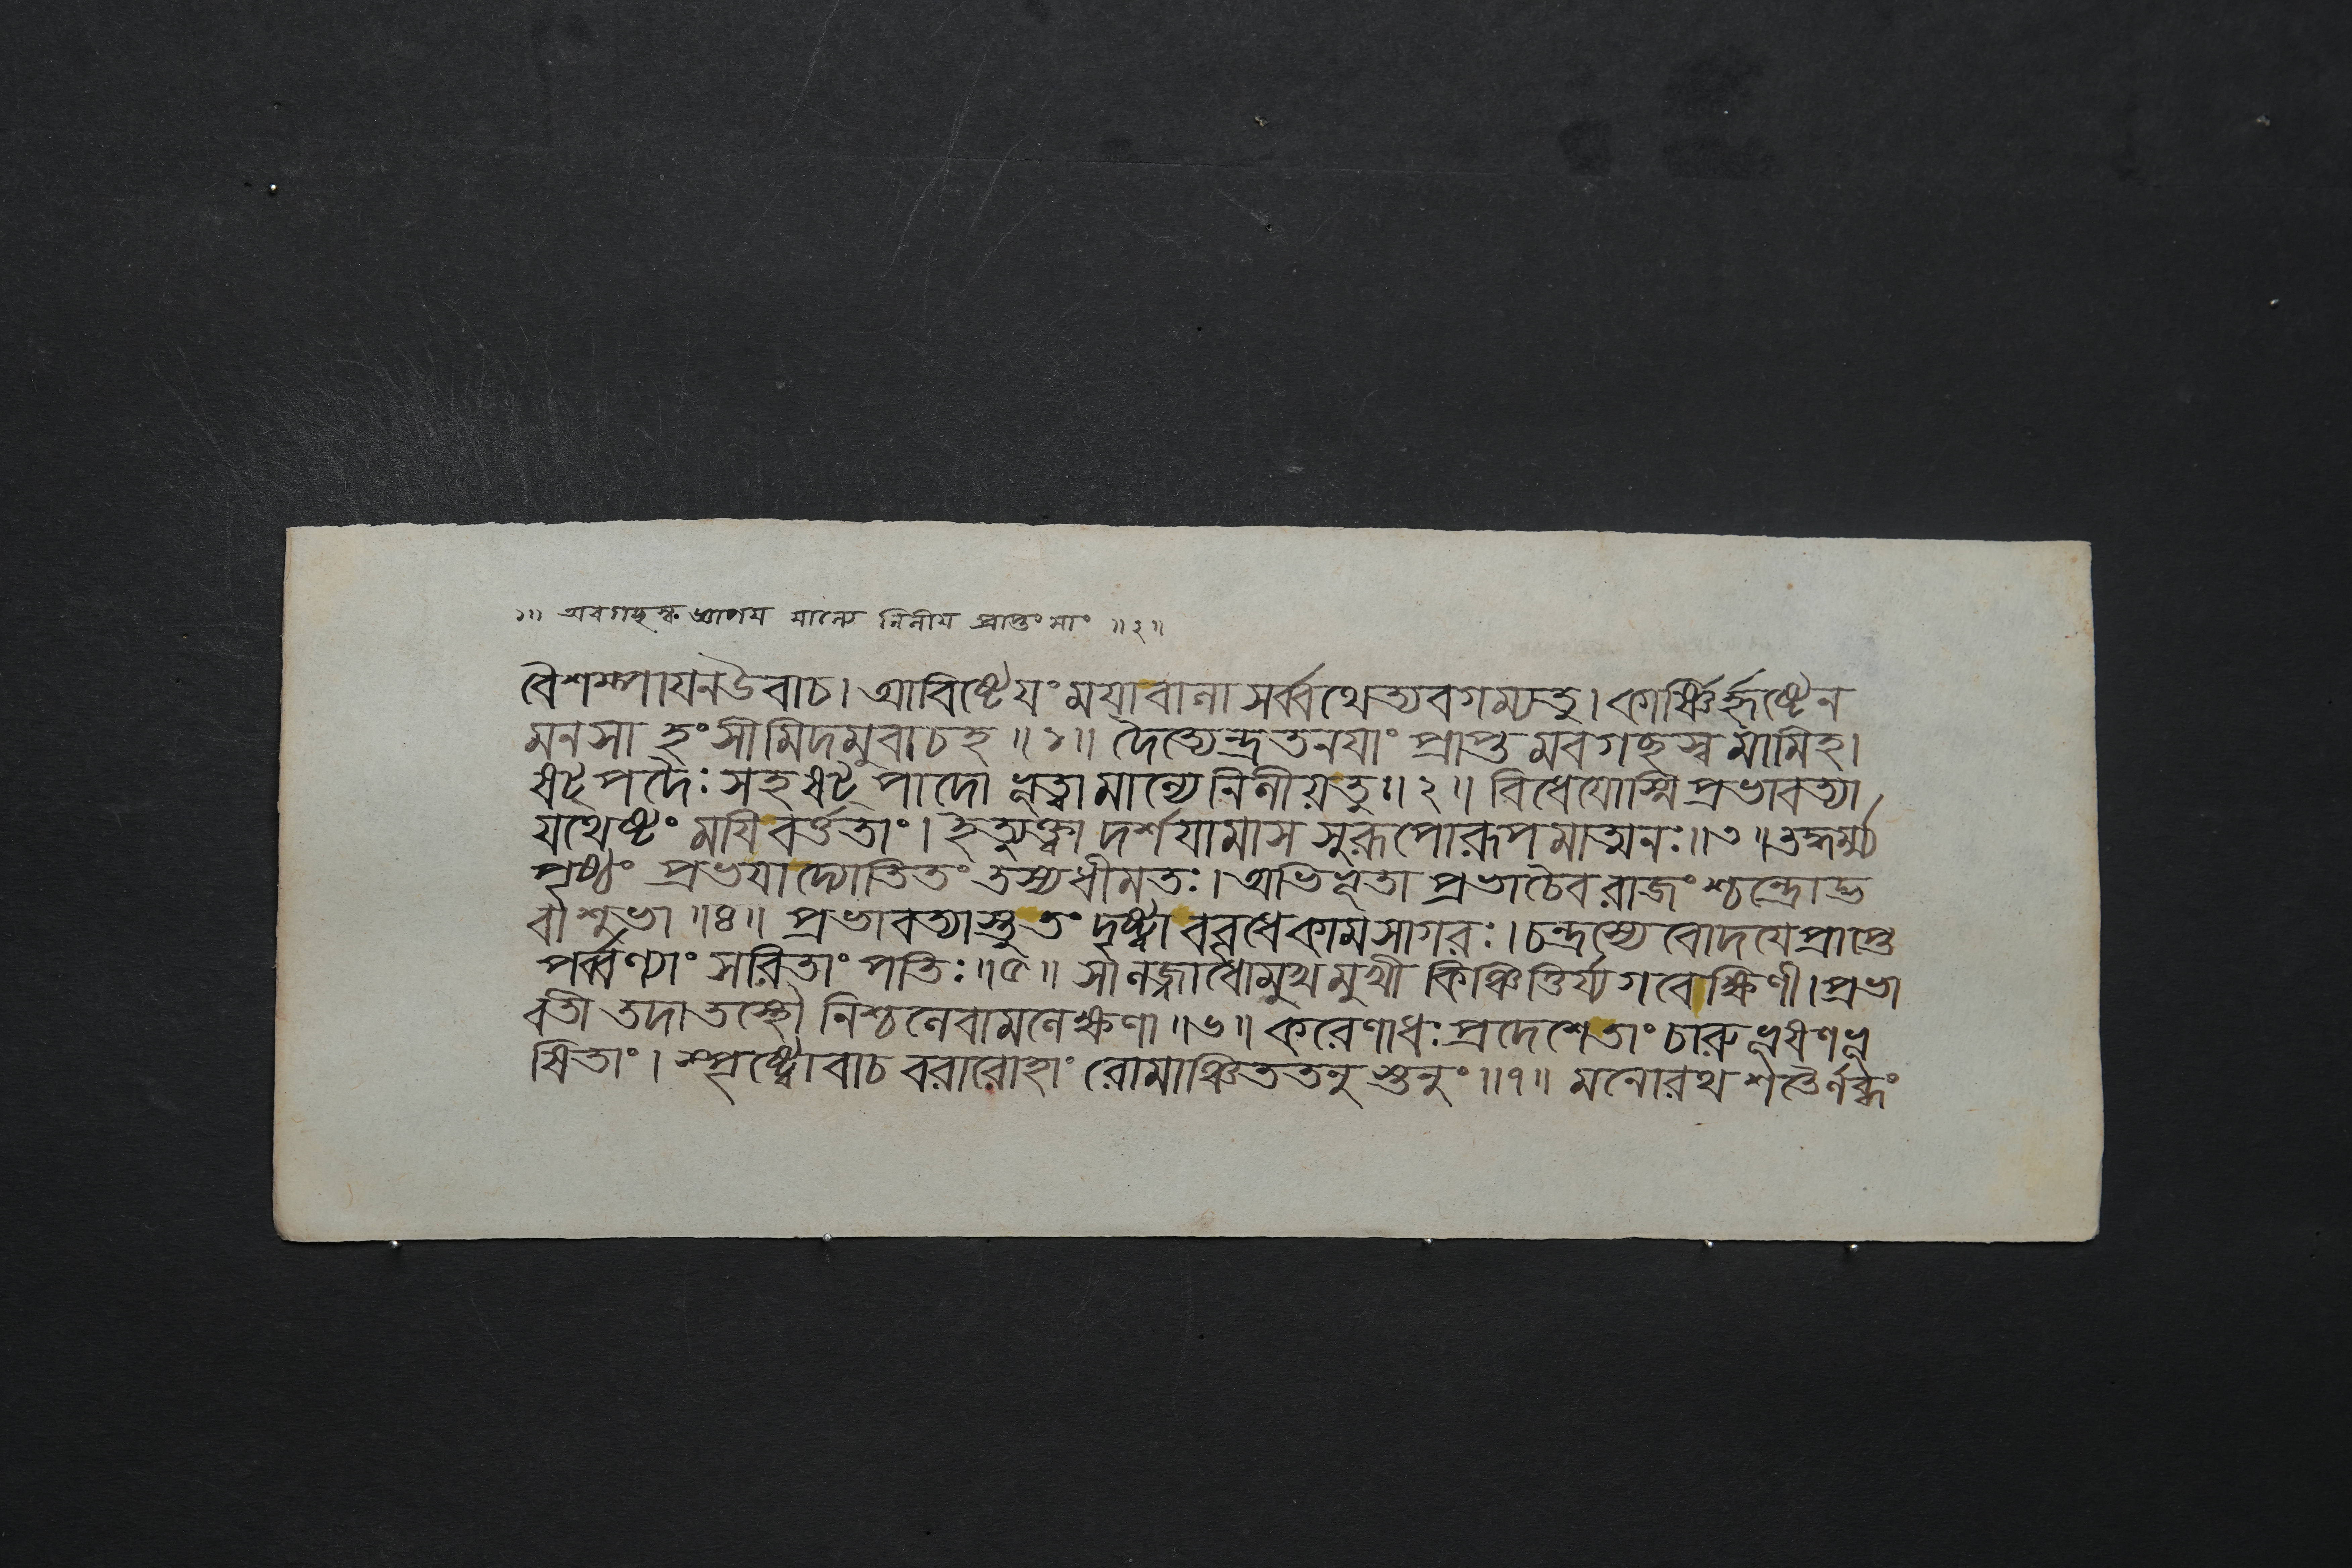 ১॥ অবগছস্ব জানয মান্যে নিনীয প্রাপ্তং মাং ॥২॥
বৈশম্পাযন উবাচ। আবিষ্টেযং মযা বানা সর্ব্বথেত্যবগম্যতু। কার্ষ্ণির্হৃষ্টেন
মনসা হংসীমিদমুবাচহ ॥১॥ দৈত্যেন্দ্রতনযাং প্রাপ্তমবগছস্ব মামিহ।
ষট্পদৈঃ সহ ষট্পাদো ভূত্বা মান্যে নিনীয়তু॥২॥ বিধেযোস্মি প্রভাবত্যা
যথেষ্টং মযি বর্ত্ততাং। ইত্যুক্ত্বা দর্শযামাস সুরূপোরূপমাত্মনঃ॥৩॥ তহর্ম্ম্য
পৃষ্ঠং প্রভযা দ্যোতিতং তস্যধীমতঃ। অভিভূতা প্রভাচৈব রাজংশ্চন্দ্রোদ্ভ
বা শুভা ॥৪॥ প্রভাবত্যাস্তু তং দৃষ্ট্বা ববৃধে কামসাগরঃ। চন্দ্রস্যেবোদযে প্রাপ্তে
পর্ব্বণ্যাং সরিতাং পতিঃ ॥৫॥ সানজ্জাধোমুখমুখী কিঞ্চিত্তির্য্যগবেক্ষিণী। প্রভা
বতী তদা তস্থৌ নিশ্চনেবামনেক্ষণা ॥৬॥ করেণাধঃপ্রদেশে তাং চারুভূষণভূ
ষিতাং। স্পৃষ্ট্বোবাচ বরারোহাং রোমাঞ্চিততনুস্তনুং ॥৭॥ মনোরথশতৈর্নব্ধং